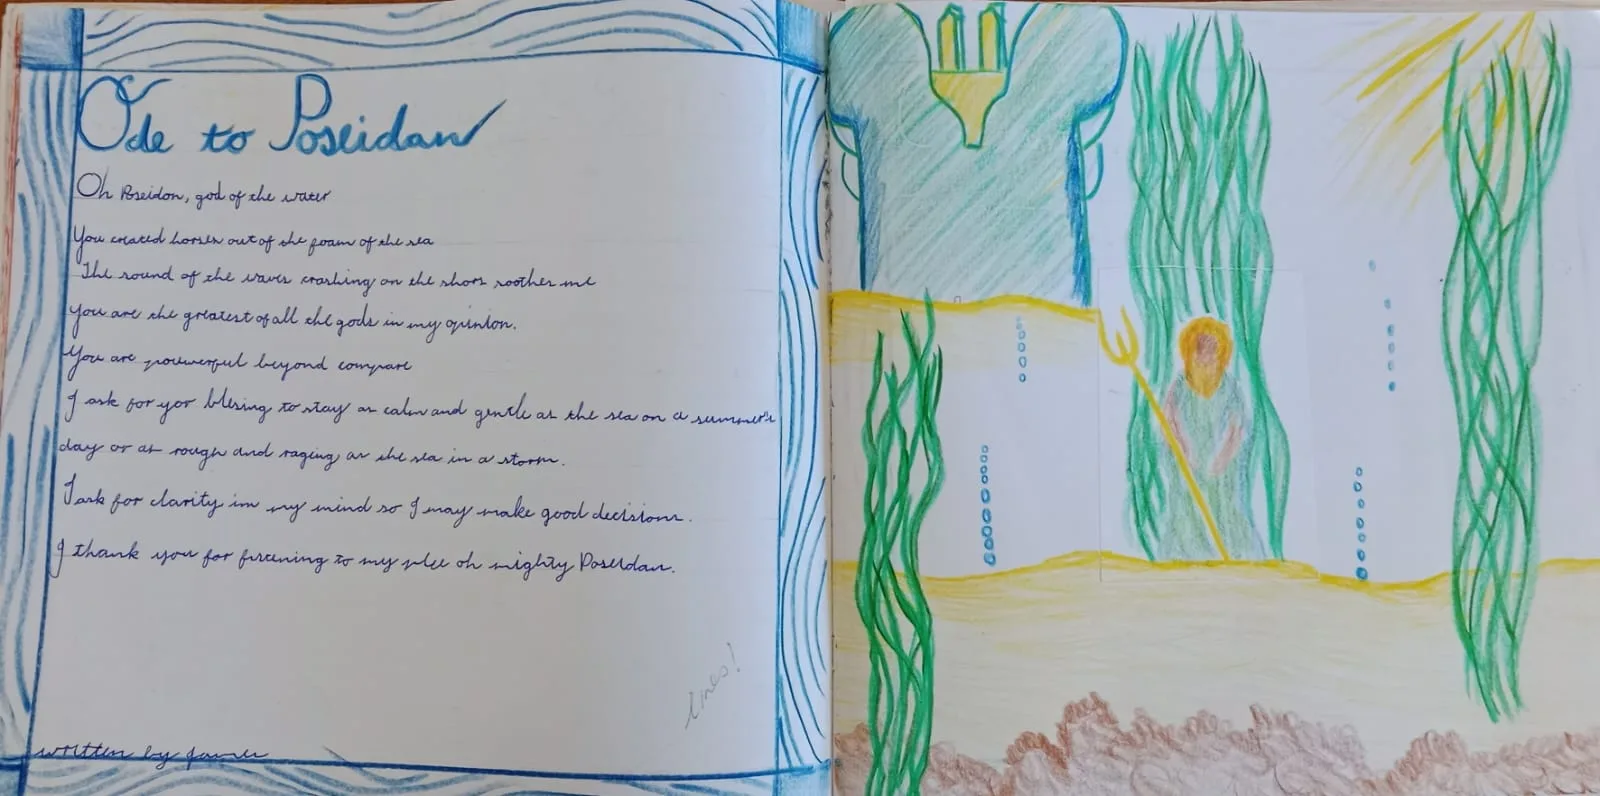 Ode to Poseidan
Oh Poseidon, god of the water
You created horses out of the foam of the sea
The sound of the waves crashing on the shore soothes me
You are the greatest of all the gods in my opinion.
You are powerful beyond compare
I ask for yor blesing to stay as calm and gentle as the sea on a summer's
day or as rough and raging as the sea in a storm.
I ask for clarity in my mind so I may make good decisions.
I thank you for listening to my plee oh mighty Poseidan.
lines!
written by James